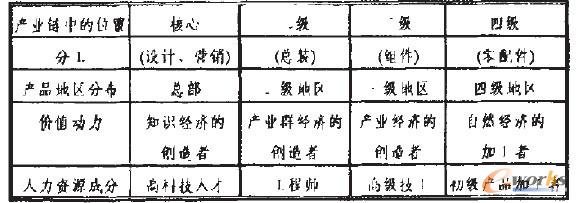 产业链中的位置 核心 级 级 四级
分工 (设计、营销) (总装) (组件) (零配件)
产品地区分布 总部 级地区 级地区 四级地区
价值动力 知识经济的 产业群经济的 产业经济的 自然经济的
创造者 创造者 创造者 加工者
人力资源成分 高科技人才 工程师 高级技工 初级产品加
works